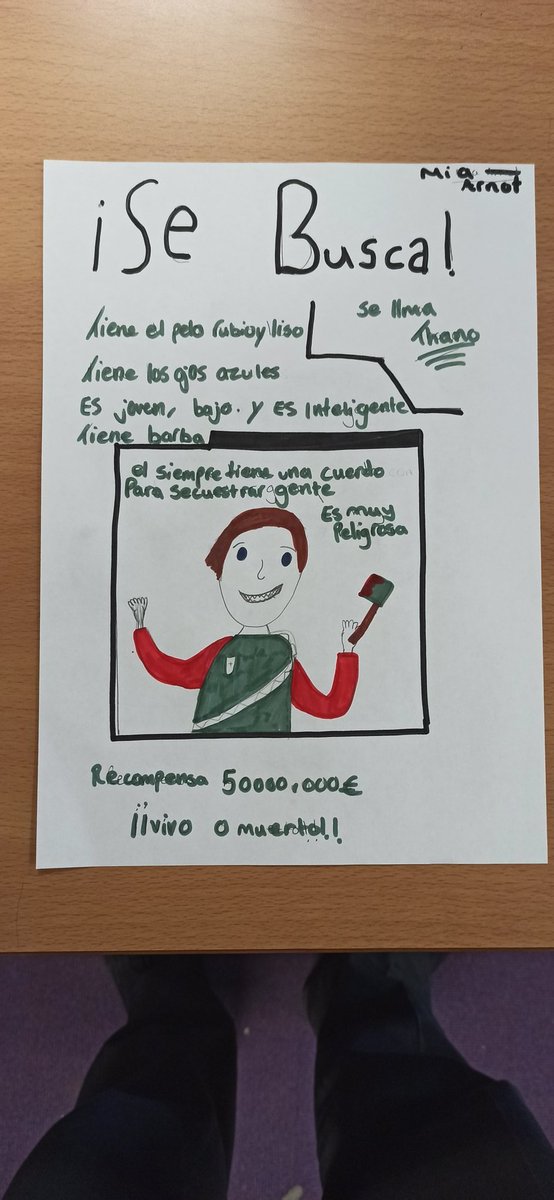 Mia
Arnot
¡Se Busca!
Se llma
Thano
Tiene el pelo rubio y liso
Tiene los ojos azules
Es joven, bajo. y Es Inteligente
Tiene barba
el siempre tiene una cuerdo
Para secuestrar gente
Es muy
Peligrosa
Recompensa 50000,000€
¡¡vivo o muerto!!